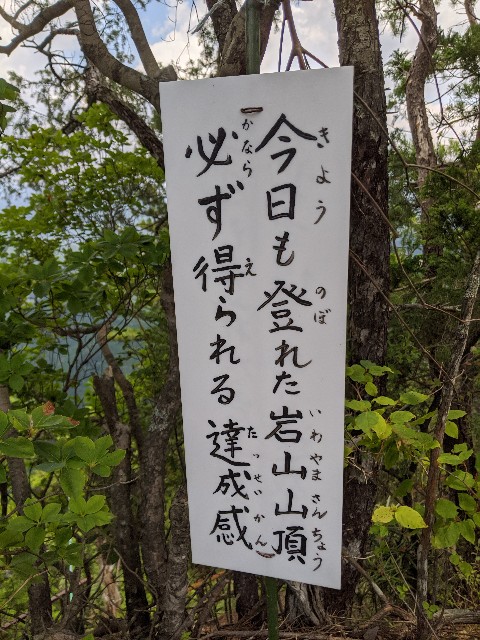 今日も登れた岩山山頂
きょう のぼ いわやまさんちょう
必ず得られる達成感
かなら え たっせいかん